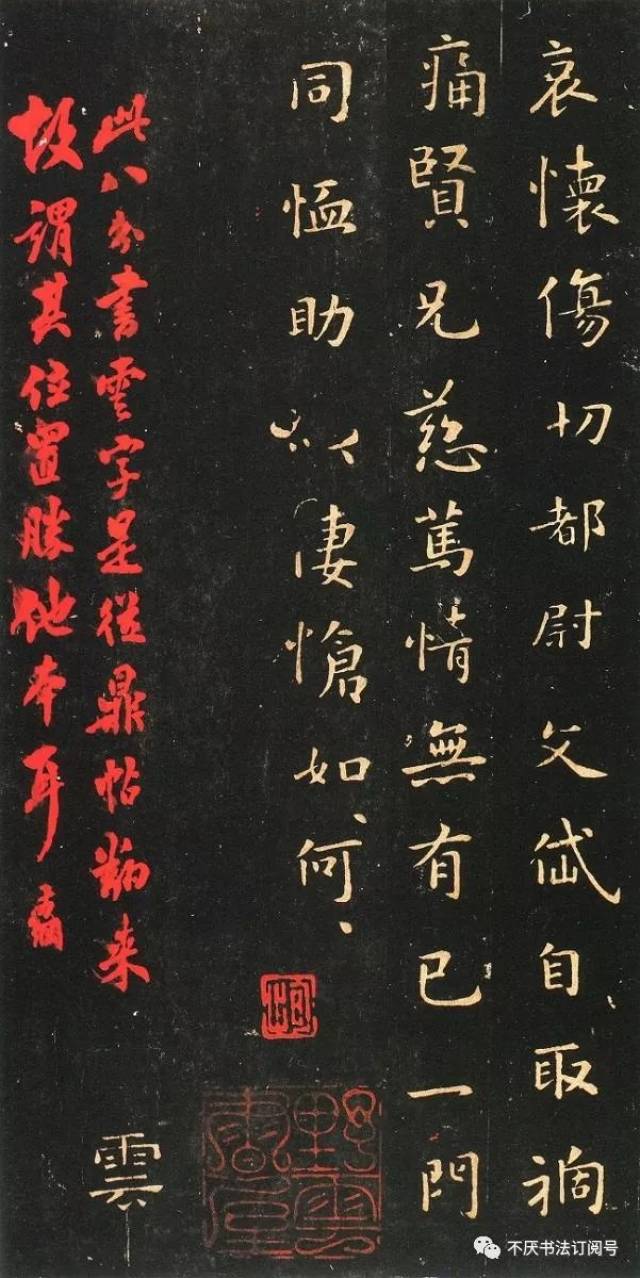 哀懷傷切都尉文岱自取禍
痛賢兄慈篤情無有已一門
同恤助以悽愴如、何、
此八分書雲字是從鼎帖翻来
故謂其位置勝他本耳
雲
野雲
不厌书法订阅号